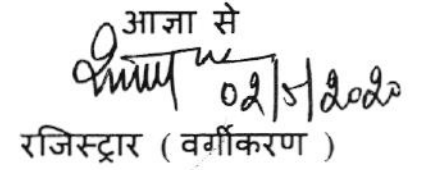 आज्ञा से
02/5/2020
रजिस्ट्रार ( वर्गीकरण )